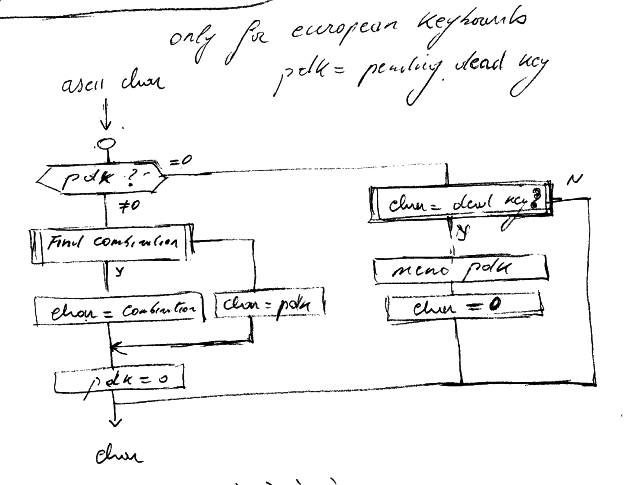 only for european keyboards
pdk = pending dead key
ascii char
pdk ?
=0
≠0
char = dead key?
N
Y
Find combination
Y
memo pdk
char = combination
char = pdk
char = 0
pdk = 0
char